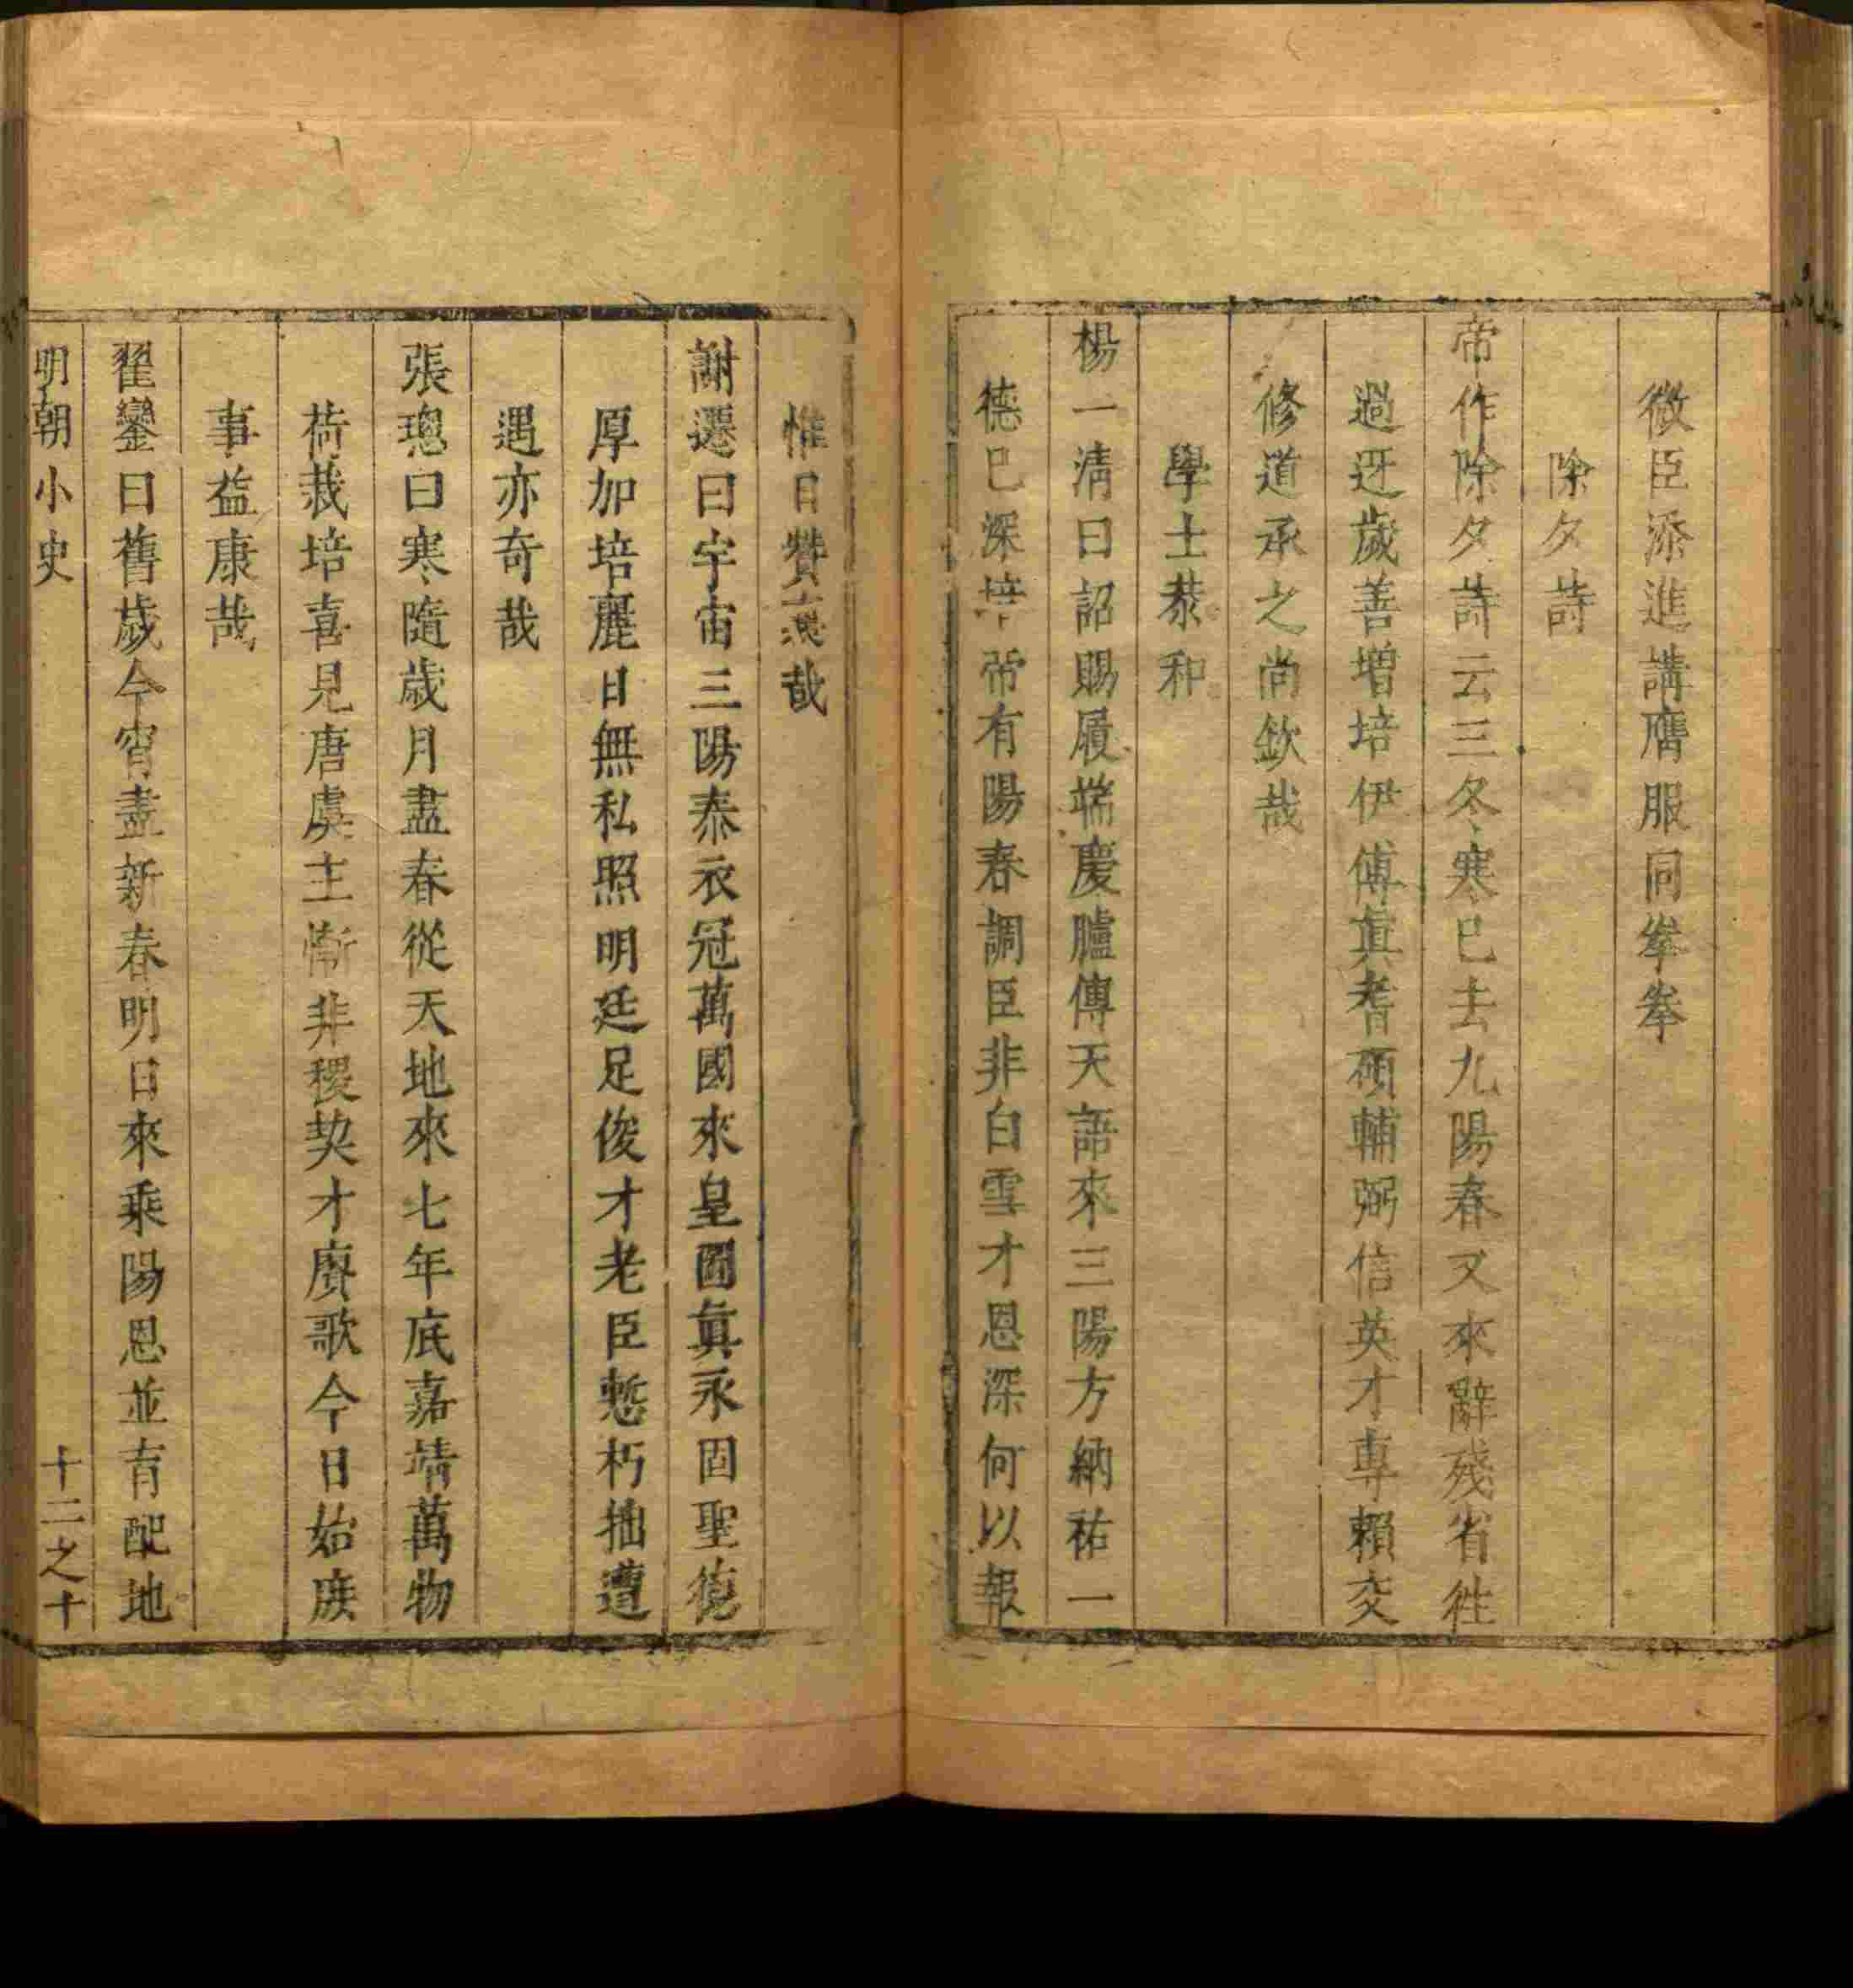 微臣添進講膺服同拳拳
除夕詩
帝作除夕詩云三冬寒已去九陽春又來辭殘省徃
過迓歲善增培伊傅真耆碩輔弼信英才專賴交
修道承之尚欽哉
學士恭和
楊一清曰詔賜履端慶臚傳天語來三陽方納祐一
德已深培帝有陽春調臣非白雪才恩深何以報
惟日贊哉
謝遷曰宇宙三陽泰衣冠萬國來皇圖眞永固聖德
厚加培麗日無私照明廷足俊才老臣慙朽拙遭
遇亦奇哉
張璁曰寒隨歲月盡春從天地來七年底嘉靖萬物
荷栽培喜見唐虞主慚非稷契才賡歌今日始庶
事益康哉
翟鑾曰舊歲今宵盡新春明日來乘陽恩並育配地
明朝小史 十二之十